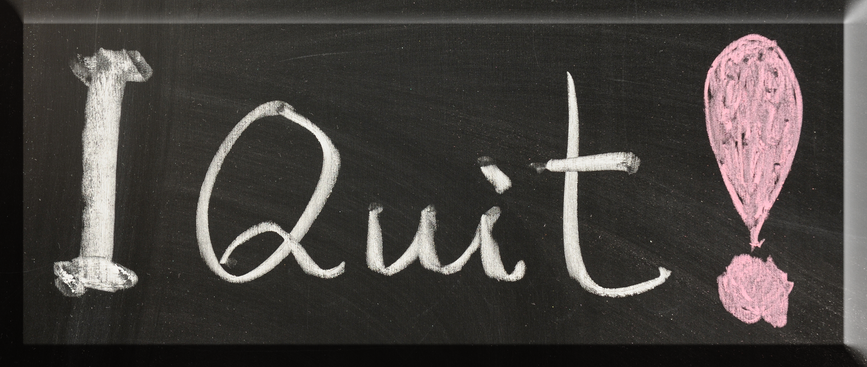 I Quit!